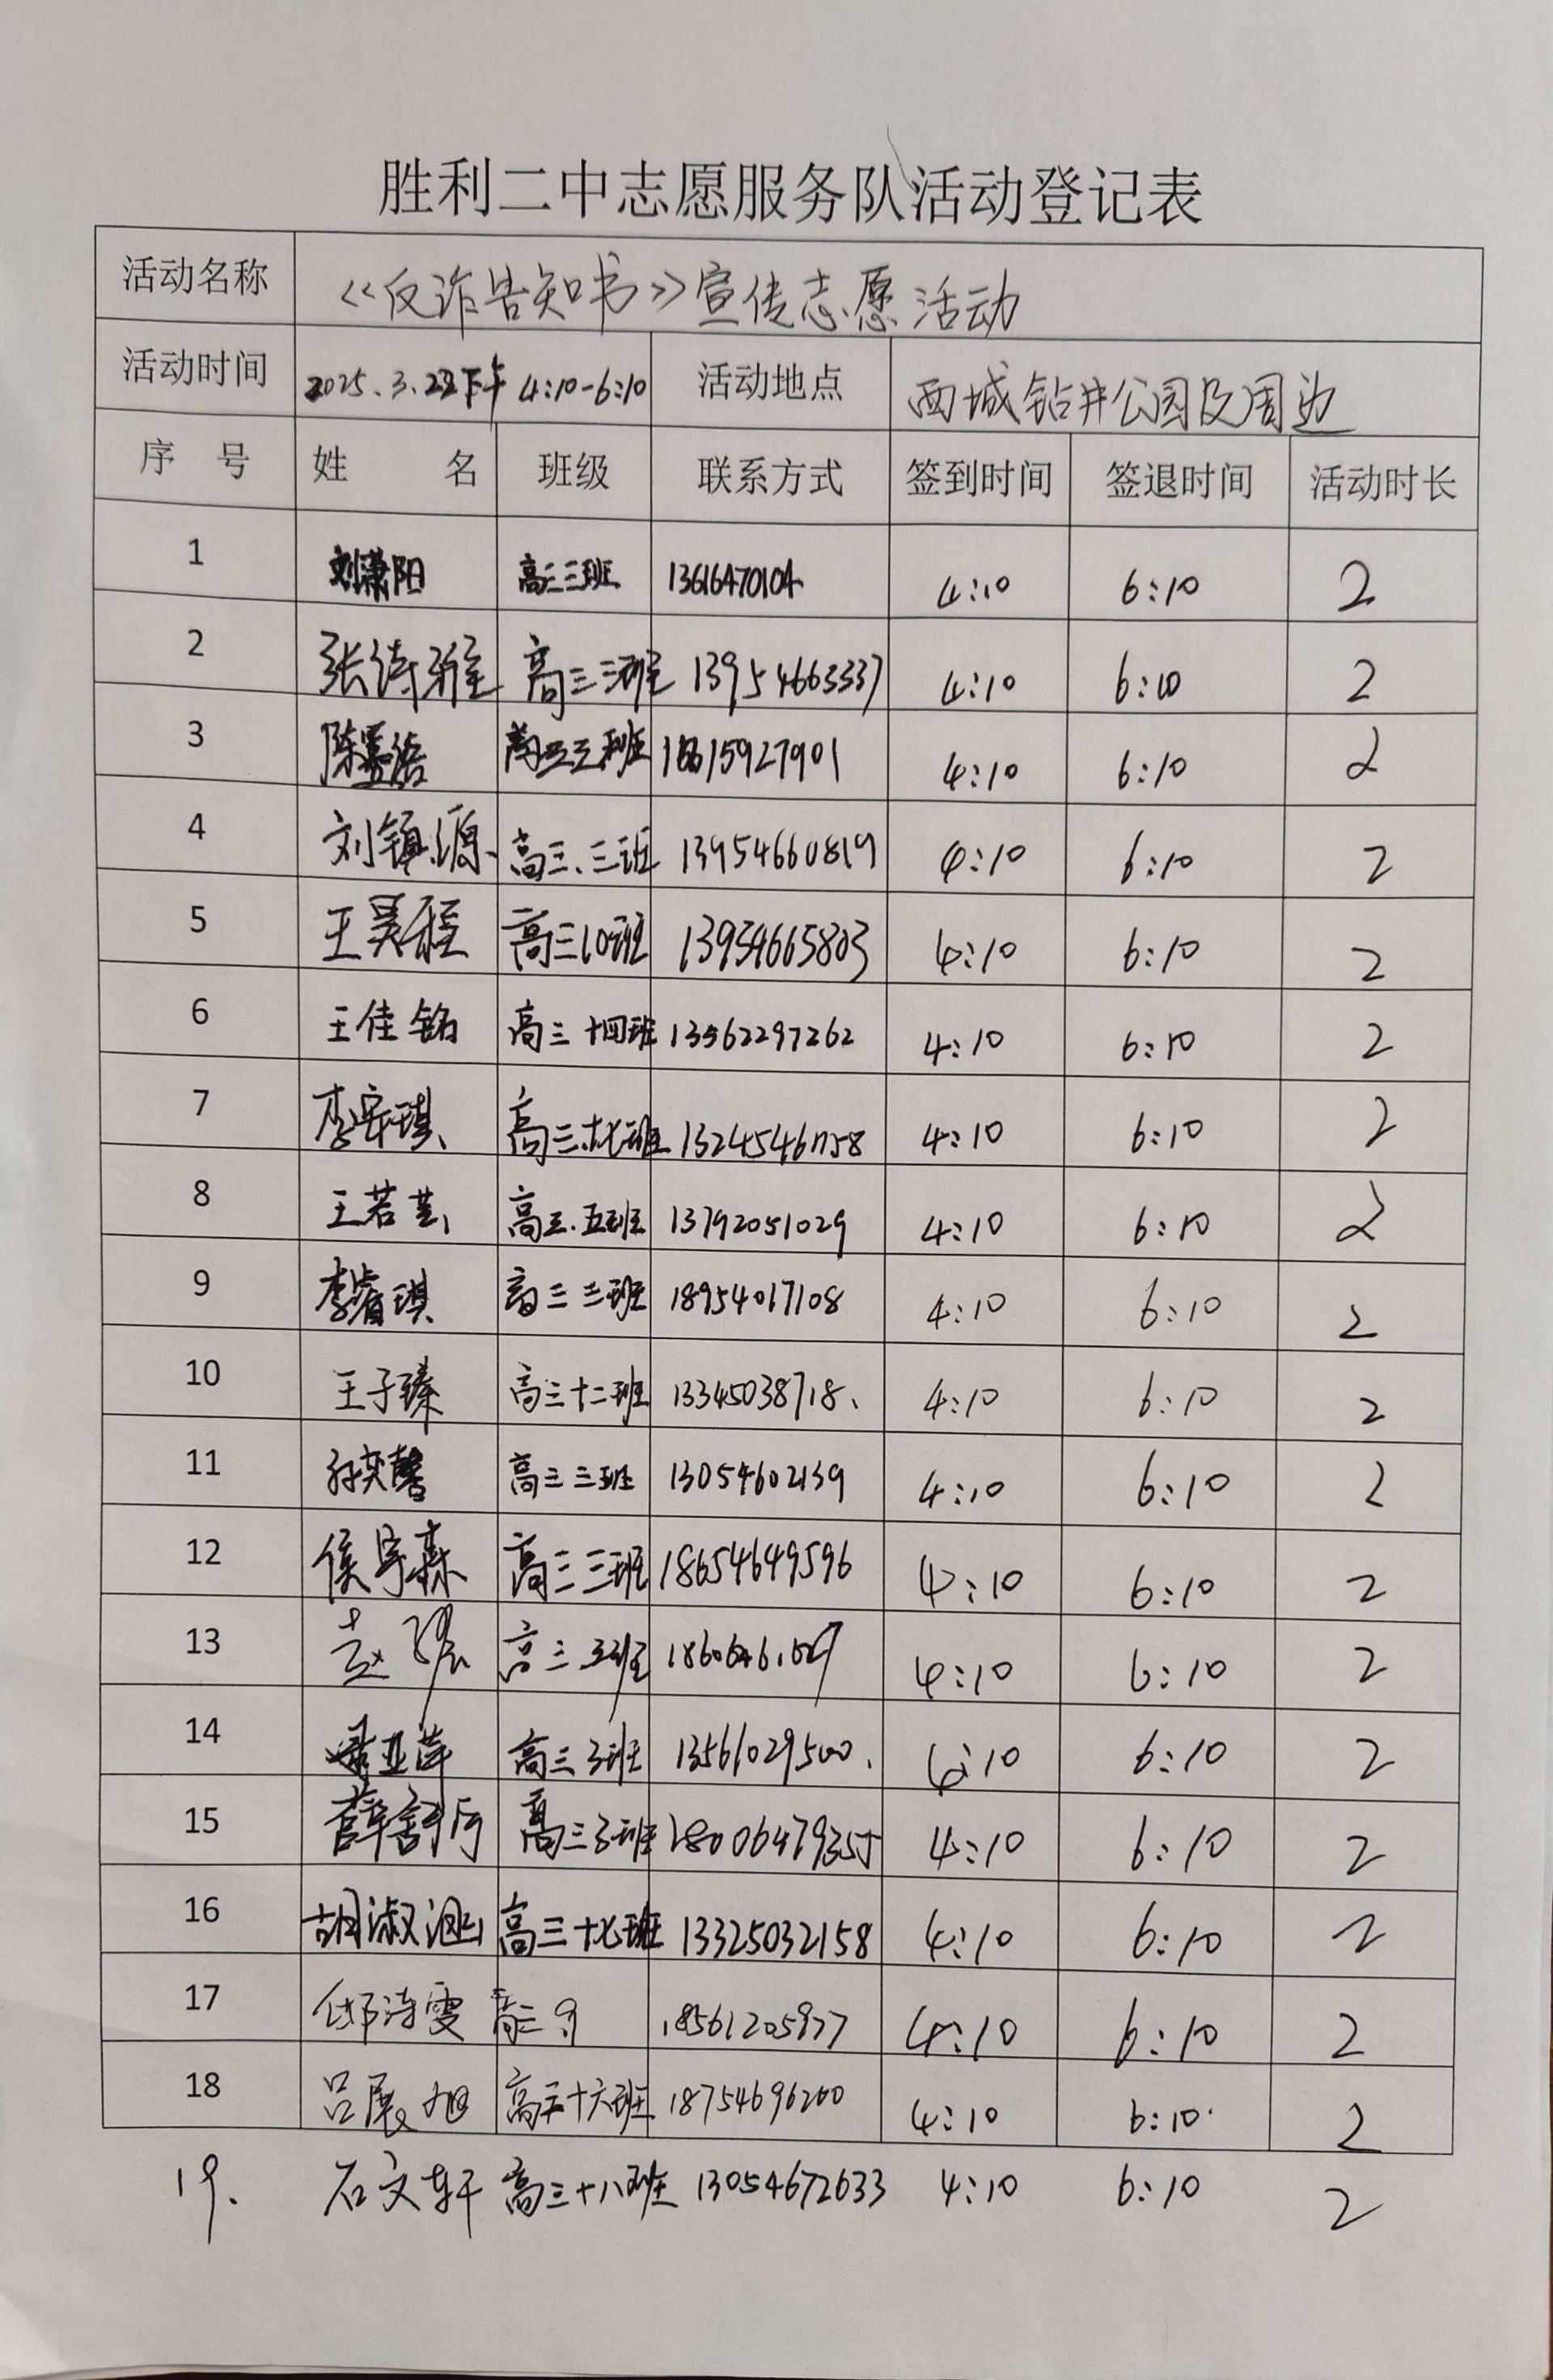 胜利二中志愿服务队活动登记表
活动名称 《反诈告知书》宣传志愿活动
活动时间 2025.3.22下午 4:10-6:10 活动地点 西城钻井公园及周边
序 号 姓 名 班级 联系方式 签到时间 签退时间 活动时长
1 刘潇阳 高三三班 13616470104 4:10 6:10 2
2 张诗雅 高三三班 13954663337 4:10 6:10 2
3 陈 高三三班 15927901 4:10 6:10 2
4 刘镇源 高三、三班 13954660819 4:10 6:10 2
5 王昊程 高三10班 13954665803 4:10 6:10 2
6 王佳铭 高三十四班 13562297262 4:10 6:10 2
7 李安琪 高三 班 4:10 6:10 2
8 王若芸 高三.五班 13792051029 4:10 6:10 2
9 李睿琪 高三三班 18954017108 4:10 6:10 2
10 王子臻 高三十二班 13345038718、 4:10 6:10 2
11 孙奕馨 高三三班 13054602139 4:10 6:10 2
12 侯宇森 高三三班 18654649596 4:10 6:10 2
13 赵 高三 班 4:10 6:10 2
14 高三3班 13561029500. 4:10 6:10 2
15 薛 高三3班 4:10 6:10 2
16 胡淑 高三十七班 13325032158 4:10 6:10 2
17 邹诗雯 高三 18561205977 4:10 6:10 2
18 吕展旭 高三十六班 18754696200 4:10 6:10 2
19. 石文轩 高三十八班 13054672633 4:10 6:10 2